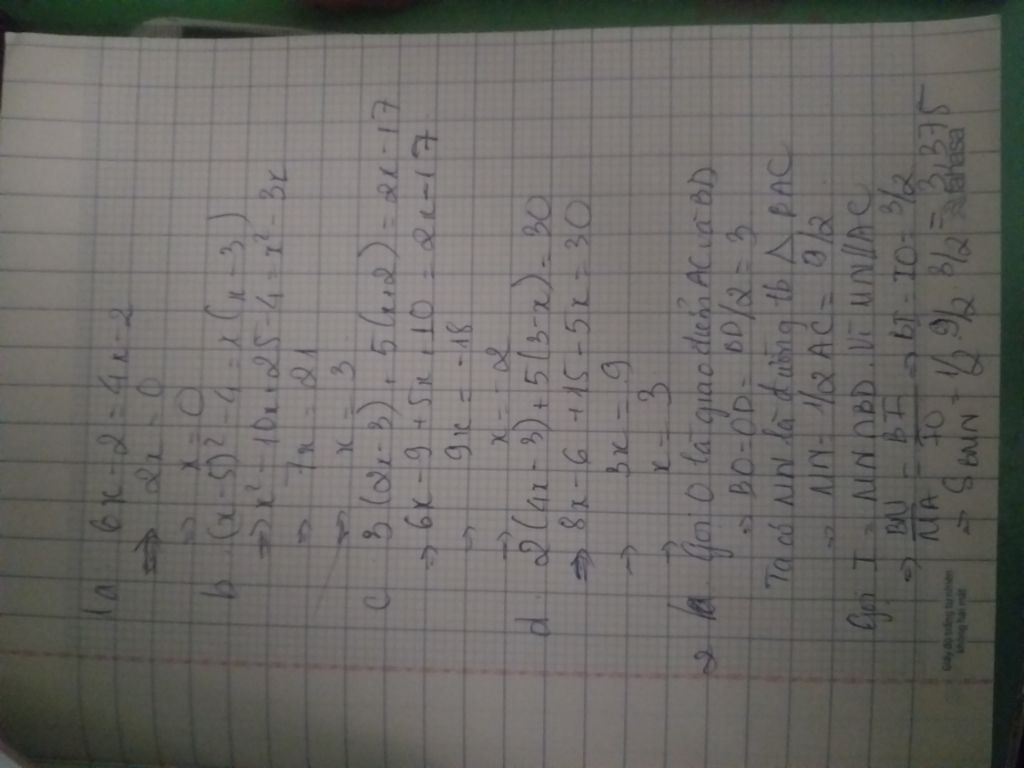 1a 6x - 2 = 4x - 2
⇒ 2x = 0
⇒ x = 0
b (x-5)² - 4 = x(x-3)
⇒ x² - 10x + 25 - 4 = x² - 3x
⇒ 7x = 21
⇒ x = 3
c 3(2x-3) + 5(x+2) = 2x - 17
⇒ 6x - 9 + 5x + 10 = 2x - 17
⇒ 9x = -18
⇒ x = -2
d 2(4x-3) + 5(3-x) = 30
⇒ 8x - 6 + 15 - 5x = 30
⇒ 3x = 9
⇒ x = 3
2 a Gọi O là giao điểm AC và BD
⇒ BO = OD = BD/2 = 3
Ta có MN là đường tb △ BAC
⇒ MN = 1/2 AC = 9/2
Gọi I = MN ∩ BD. Vì MN // AC
⇒ BM/MA = BI/IO ⇒ BI = IO = 3/2
⇒ S BMN = 1/2 . 9/2 . 3/2 = 3,375
Giấy ... trắng tự nhiên
không hại mắt